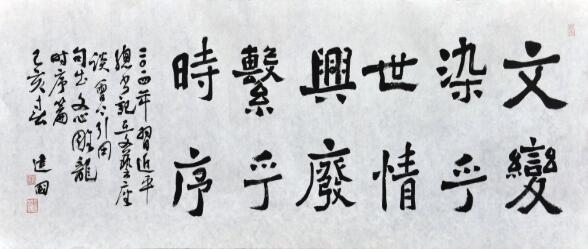 文變
染乎
世情
興廢
繫乎
時序
二〇一四年習近平
總书記在文藝座
談會上引用
句出文心雕龍
时序篇
己亥春